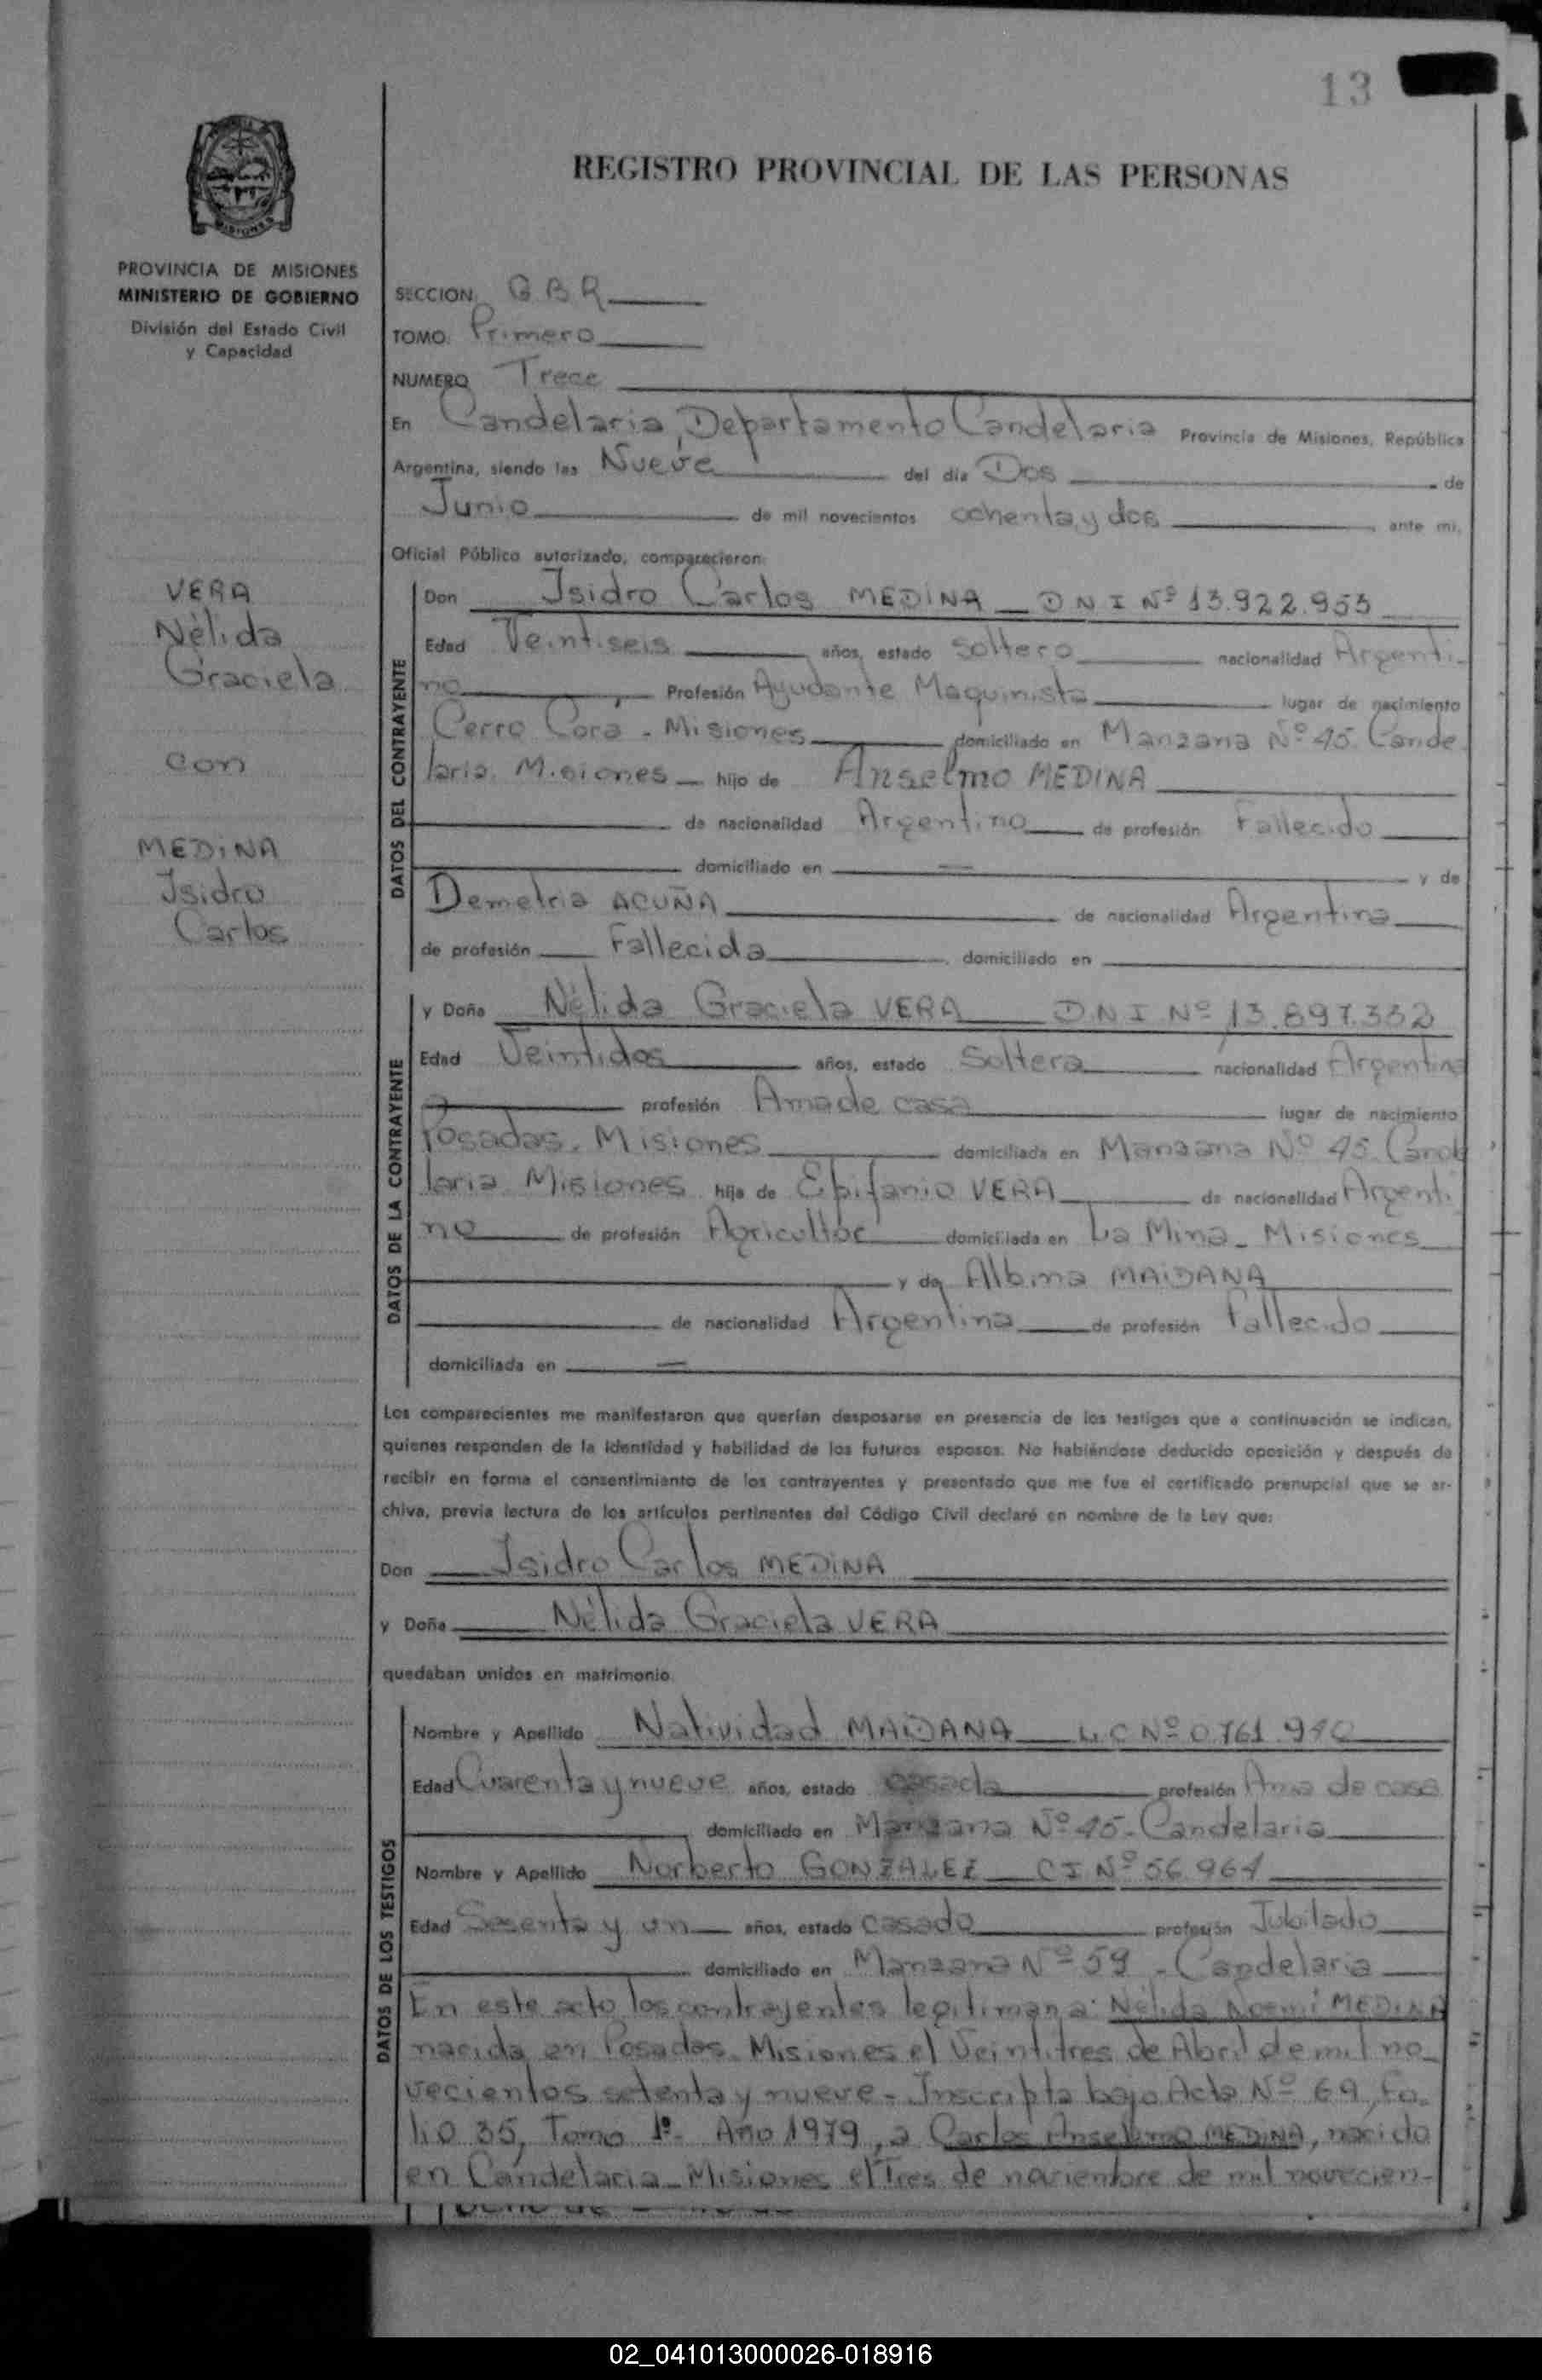 13
REGISTRO PROVINCIAL DE LAS PERSONAS
MISIONES
PROVINCIA DE MISIONES
MINISTERIO DE GOBIERNO
División del Estado Civil
y Capacidad
SECCION G B R
TOMO: Primero
NUMERO Trece
En Candelaria, Departamento Candelaria Provincia de Misiones, República
Argentina, siendo las Nueve del día Dos de
Junio de mil novecientos ochenta y dos ante mi,
Oficial Público autorizado, comparecieron:
VERA
Nélida
Graciela
con
MEDINA
Isidro
Carlos
DATOS DEL CONTRAYENTE
Don Isidro Carlos MEDINA D N I Nº 13.922.953
Edad Veintiseis años, estado soltero nacionalidad Argenti-
no Profesión Ayudante Maquinista lugar de nacimiento
Cerro Corá - Misiones domiciliado en Manzana Nº 45. Cande
laria. Misiones hijo de Anselmo MEDINA
de nacionalidad Argentino de profesión Fallecido
domiciliado en — y de
Demetria ACUÑA de nacionalidad Argentina
de profesión Fallecida domiciliado en
DATOS DE LA CONTRAYENTE
y Doña Nélida Graciela VERA D.N.I Nº 13.897.332
Edad Veintidos años, estado Soltera nacionalidad Argentina
profesión Ama de casa lugar de nacimiento
Posadas. Misiones domiciliada en Manzana Nº 45. Cande
laria Misiones hija de Epifanio VERA de nacionalidad Argenti
no de profesión Agricultor domiciliada en La Mina - Misiones
y de Albina MAIDANA
de nacionalidad Argentina de profesión Fallecido
domiciliada en —
Los comparecientes me manifestaron que querían desposarse en presencia de los testigos que a continuación se indican,
quienes responden de la identidad y habilidad de los futuros esposos. No habiéndose deducido oposición y después de
recibir en forma el consentimiento de los contrayentes y presentado que me fue el certificado prenupcial que se ar-
chiva, previa lectura de los artículos pertinentes del Código Civil declaré en nombre de la Ley que:
Don Isidro Carlos MEDINA
y Doña Nélida Graciela VERA
quedaban unidos en matrimonio.
DATOS DE LOS TESTIGOS
Nombre y Apellido Natividad MAIDANA L.C Nº 0.761.940
Edad Cuarenta y nueve años, estado casada profesión Ama de casa
domiciliado en Manzana Nº 45 - Candelaria
Nombre y Apellido Norberto GONZALEZ C I Nº 56.964
Edad Sesenta y un años, estado casado profesión Jubilado
domiciliado en Manzana Nº 59 - Candelaria
En este acto los contrayentes legitiman a: Nélida Noemi MEDINA
nacida en Posadas. Misiones el Veintitres de Abril de mil no-
vecientos setenta y nueve - Inscripta bajo Acta Nº 69, Fo-
lio 35, Tomo 1º- Año 1979, a Carlos Anselmo MEDINA, nacido
en Candelaria - Misiones el Tres de noviembre de mil novecien-
02_041013000026-018916